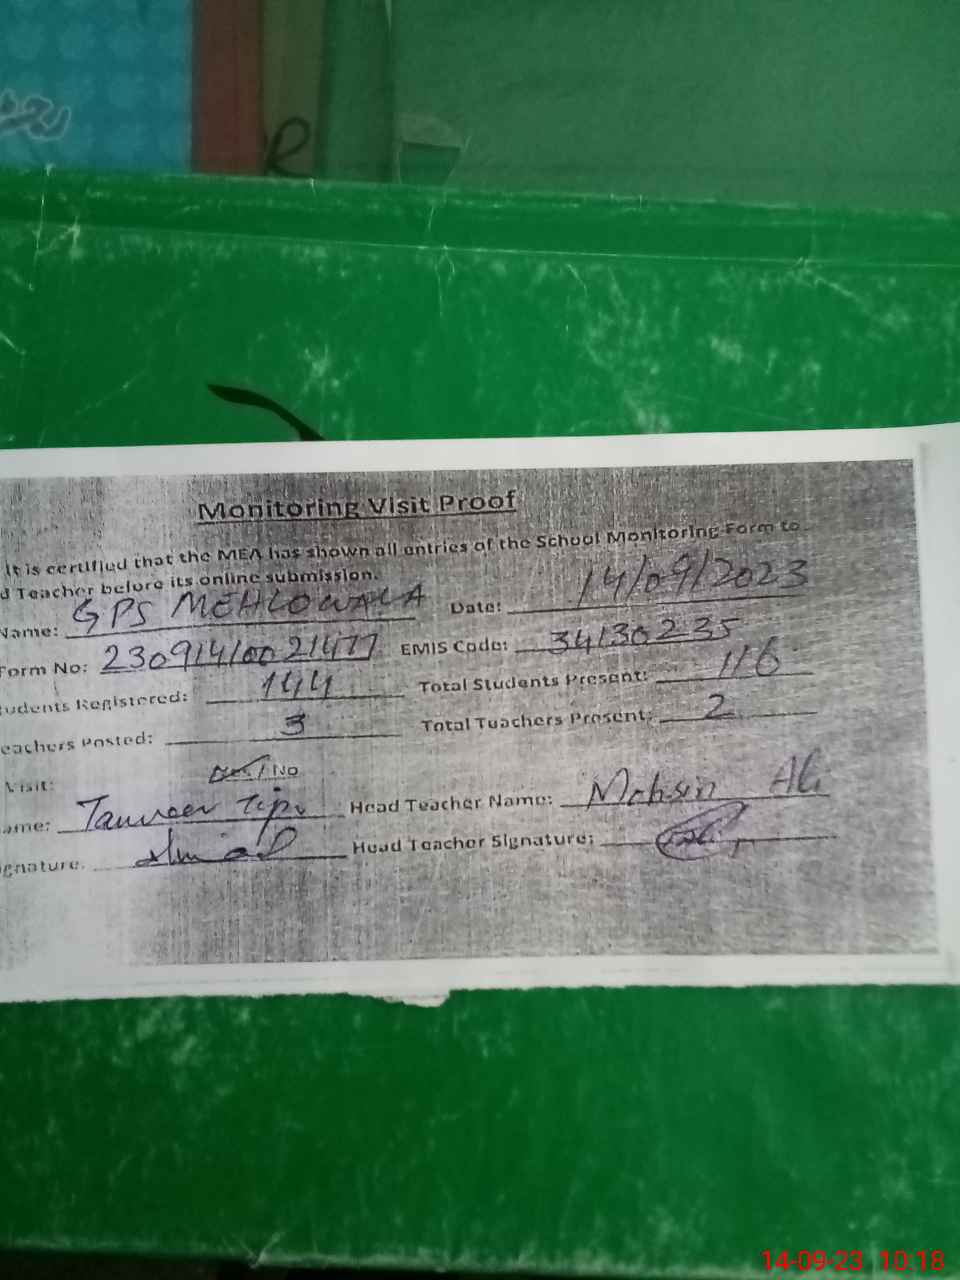 R
Monitoring Visit Proof
It is certified that the MEA has shown all entries of the School Monitoring Form to
d Teacher before its online submission.
Name: GPS MEHLOWALA Date: 14/09/2023
Form No: 23091410021477 EMIS Code: 34130235
tudents Registered: 144 Total Students Present: 116
eachers Posted: 3 Total Teachers Present: 2
Visit: Yes / No
ame: Tanveer Tipu Head Teacher Name: Mohsin Ali
ignature: Head Teacher Signature:
14-09-23 10:18